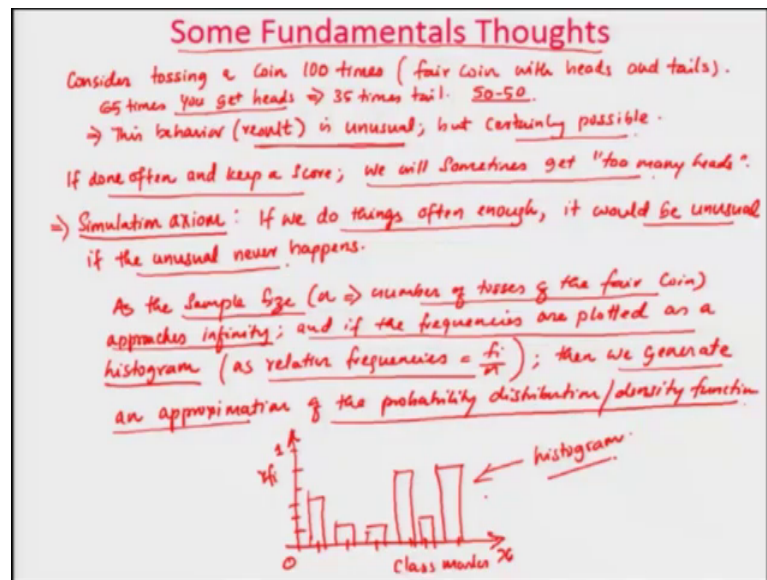 Some Fundamentals Thoughts
Consider tossing a coin 100 times (fair coin with heads and tails).
65 times you get heads ⇒ 35 times tail. 50-50.
⇒ This behavior (result) is unusual; but certainly possible.
If done often and keep a score; we will sometimes get "too many heads".
⇒ Simulation axiom: If we do things often enough, it would be unusual
if the unusual never happens.
As the sample size (n ⇒ number of tosses of the fair coin)
approaches infinity; and if the frequencies are plotted as a
histogram (as relative frequencies = fi/n); then we generate
an approximation of the probability distribution/density function
histogram.
1
rfi
0
Class marks x